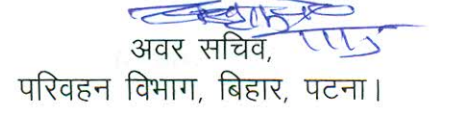 अवर सचिव,
परिवहन विभाग, बिहार, पटना।